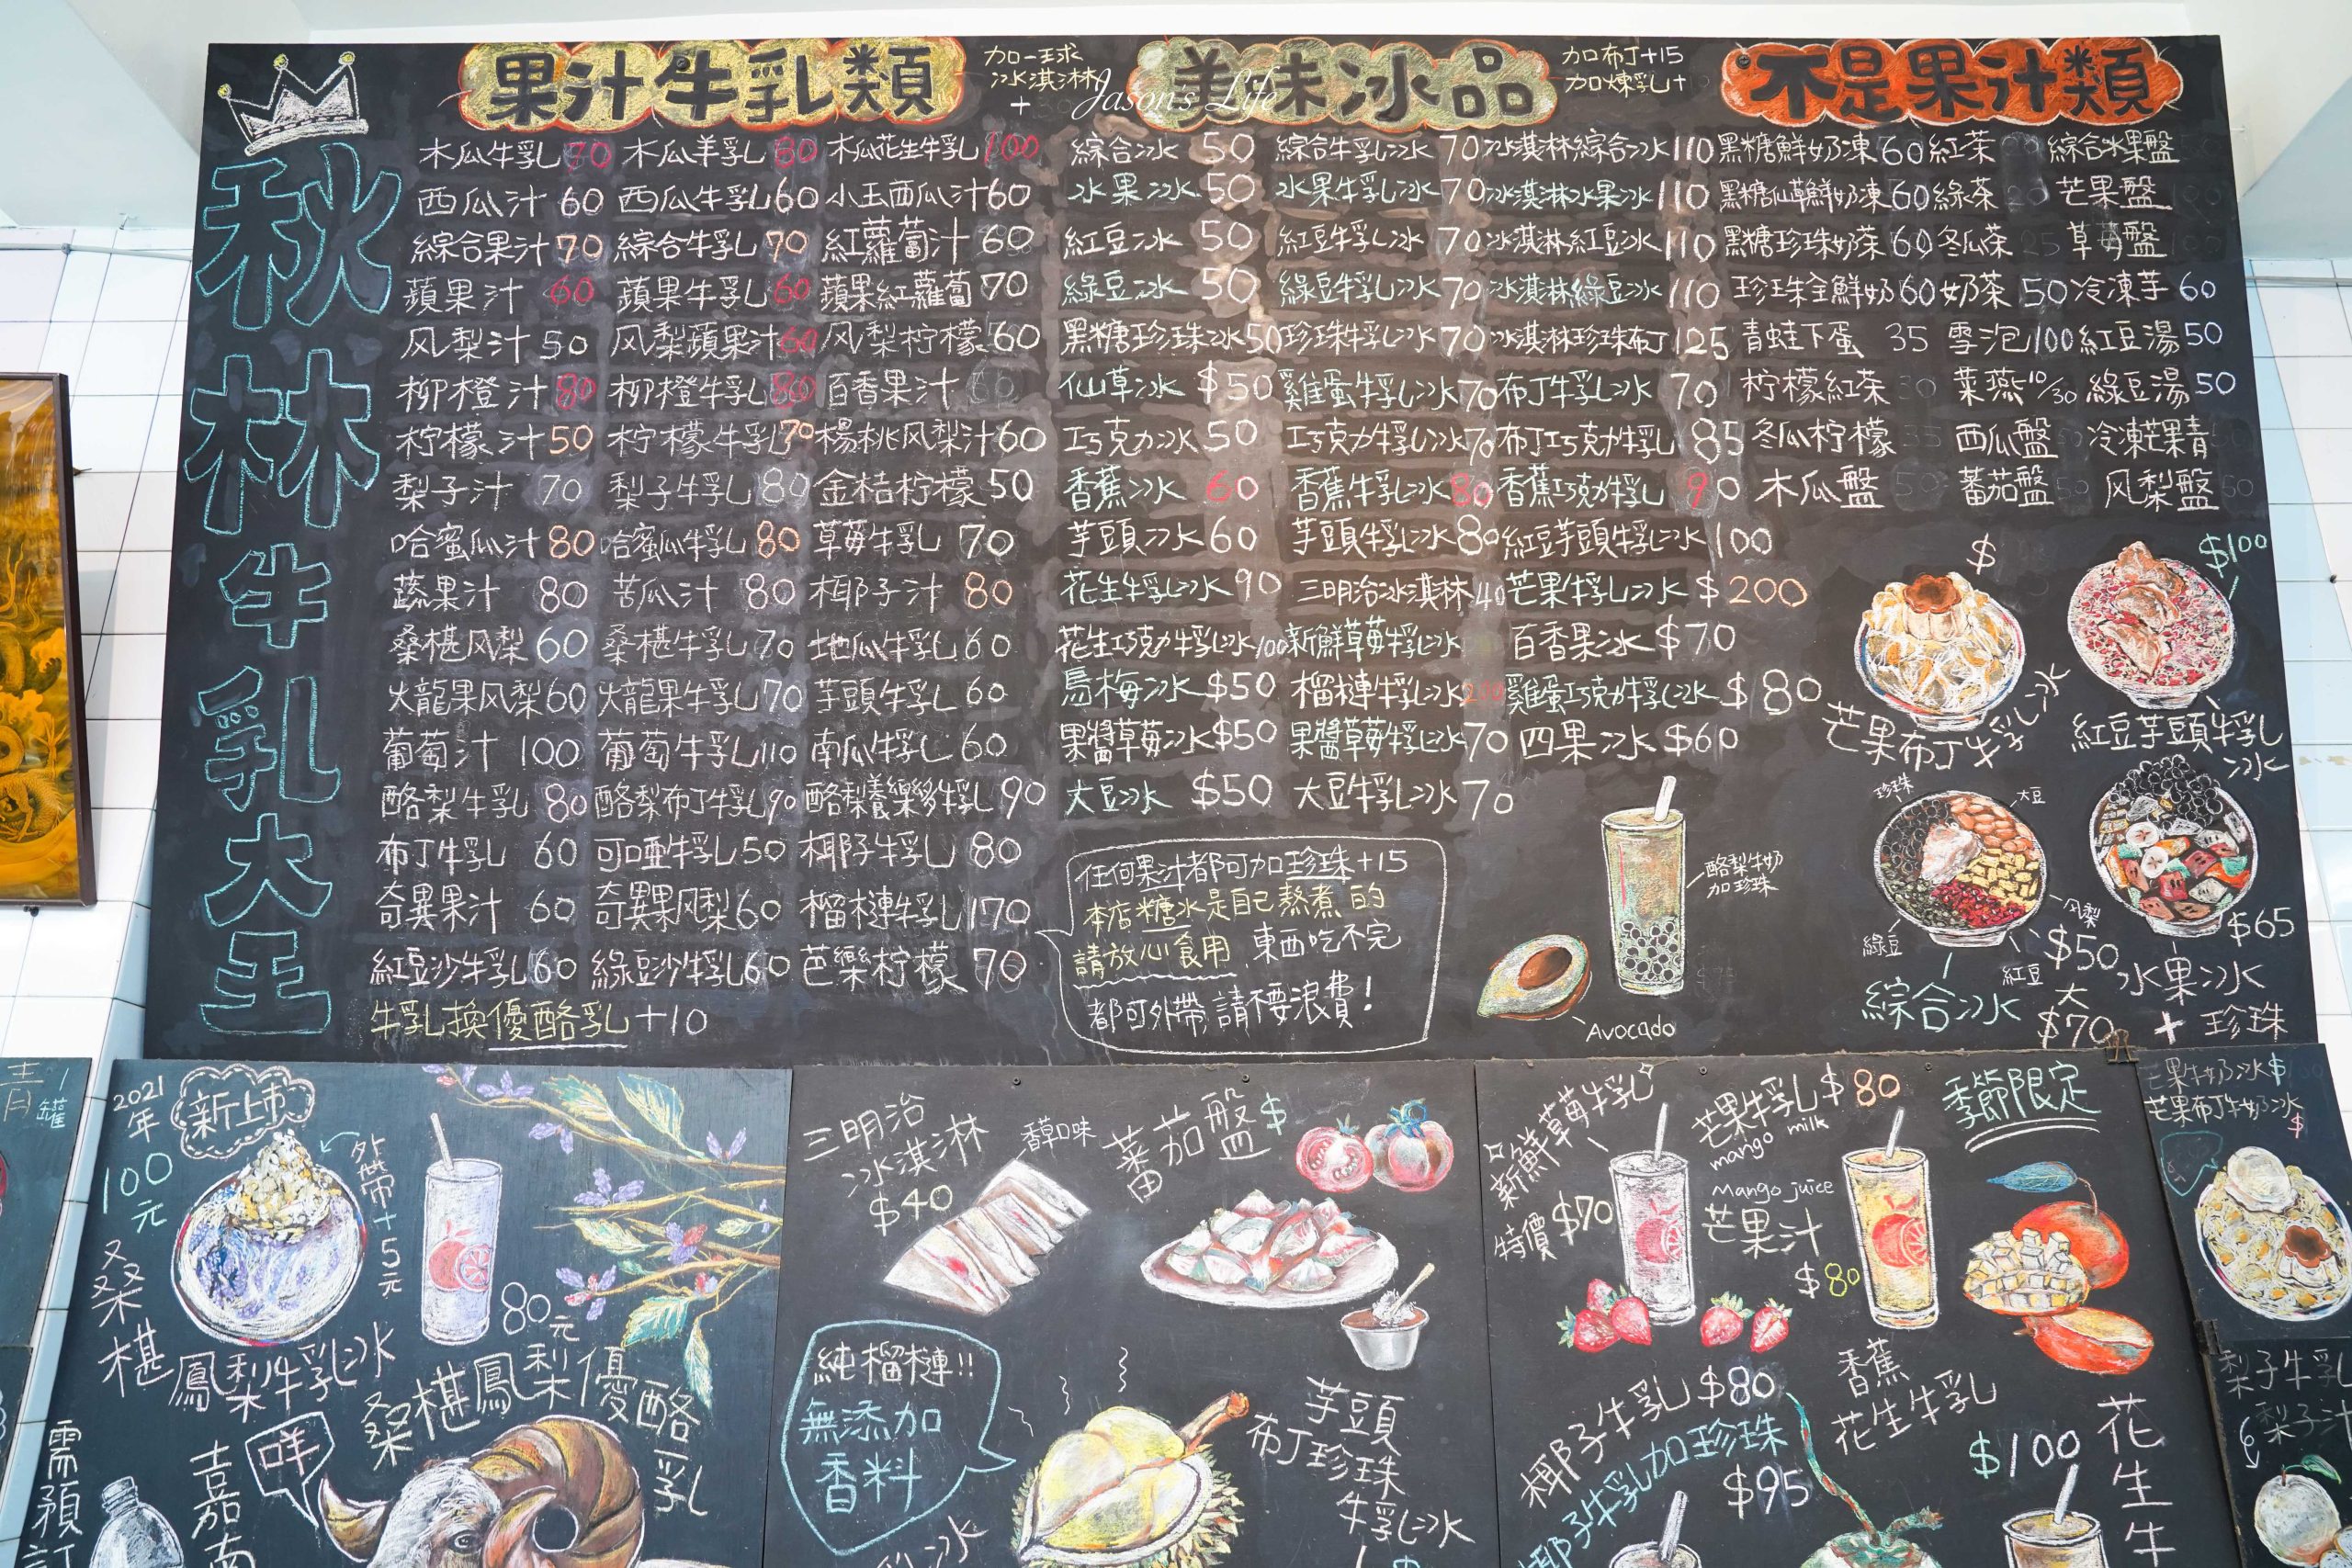 秋林牛乳大王
果汁牛乳類
加一球
冰淇淋
+
木瓜牛乳 70 木瓜羊乳 80 木瓜花生牛乳 100
西瓜汁 60 西瓜牛乳 60 小玉西瓜汁 60
綜合果汁 70 綜合牛乳 70 紅蘿蔔汁 60
蘋果汁 60 蘋果牛乳 60 蘋果紅蘿蔔 70
风梨汁 50 风梨蘋果汁 60 风梨柠檬 60
柳橙汁 80 柳橙牛乳 80 百香果汁 60
柠檬汁 50 柠檬牛乳 70 楊桃风梨汁 60
梨子汁 70 梨子牛乳 80 金桔柠檬 50
哈蜜瓜汁 80 哈蜜瓜牛乳 80 草莓牛乳 70
蔬果汁 80 苦瓜汁 80 椰子汁 80
桑椹风梨 60 桑椹牛乳 70 地瓜牛乳 60
火龍果风梨 60 火龍果牛乳 70 芋頭牛乳 60
葡萄汁 100 葡萄牛乳 110 南瓜牛乳 60
酪梨牛乳 80 酪梨布丁牛乳 90 酪梨養樂多牛乳 90
布丁牛乳 60 可口亞牛乳 50 椰子牛乳 80
奇異果汁 60 奇異果风梨 60 榴槤牛乳 170
紅豆沙牛乳 60 綠豆沙牛乳 60 芭樂柠檬 70
牛乳換優酪乳+10
美味冰品
Jason's Life
加布丁+15
加煉乳+
綜合冰 50 綜合牛乳冰 70 冰淇淋綜合冰 110
水果冰 50 水果牛乳冰 70 冰淇淋水果冰 110
紅豆冰 50 紅豆牛乳冰 70 冰淇淋紅豆冰 110
綠豆冰 50 綠豆牛乳冰 70 冰淇淋綠豆冰 110
黑糖珍珠冰 50 珍珠牛乳冰 70 冰淇淋珍珠布丁 125
仙草冰 $50 雞蛋牛乳冰 70 布丁牛乳冰 70
巧克力冰 50 巧克力牛乳冰 70 布丁巧克力牛乳 85
香蕉冰 60 香蕉牛乳冰 80 香蕉巧克力牛乳 90
芋頭冰 60 芋頭牛乳冰 80 紅豆芋頭牛乳冰 100
花生牛乳冰 90 三明治冰淇淋 40 芒果牛乳冰 $200
花生巧克力牛乳冰 100 新鮮草莓牛乳冰 百香果冰 $70
烏梅冰 $50 榴槤牛乳冰 200 雞蛋巧克力牛乳冰 $80
果醬草莓冰 $50 果醬草莓牛乳冰 70 四果冰 $60
大豆冰 $50 大豆牛乳冰 70
任何果汁都可加珍珠+15
本店糖水是自己熬煮的
請放心食用,東西吃不完
都可外帶,請不要浪費!
不是果汁類
黑糖鮮奶凍 60 紅茶 綜合水果盤
黑糖仙草鮮奶凍 60 綠茶 20 芒果盤
黑糖珍珠奶茶 60 冬瓜茶 25 草莓盤
珍珠全鮮奶 60 奶茶 50 冷凍芋 60
青蛙下蛋 35 雪泡 100 紅豆湯 50
柠檬紅茶 30 菓燕 10/30 綠豆湯 50
冬瓜柠檬 35 西瓜盤 冷凍芒果青
木瓜盤 50 蕃茄盤 50 风梨盤 50
$
芒果布丁牛乳冰
$100
紅豆芋頭牛乳冰
酪梨牛奶
加珍珠
Avocado
珍珠
大豆
风梨
綠豆
紅豆
綜合冰
$50
大
$70
$65
水果冰
+珍珠
2021年
新上市
100元
外帶+5元
桑椹鳳梨牛乳冰
80元
桑椹鳳梨優酪乳
咩
需預訂
嘉南
三明治
冰淇淋
$40
香草口味
蕃茄盤 $
純榴槤!!
無添加
香料
芋頭
布丁珍珠
牛乳冰
新鮮草莓牛乳
特價 $70
芒果牛乳 $80
mango milk
Mango juice
芒果汁
$80
季節限定
椰子牛乳 $80
椰子牛乳加珍珠
$95
香蕉
花生牛乳
$100
花生牛
芒果牛奶冰 $
芒果布丁牛奶冰
$
梨子牛乳
梨子汁
青
罐